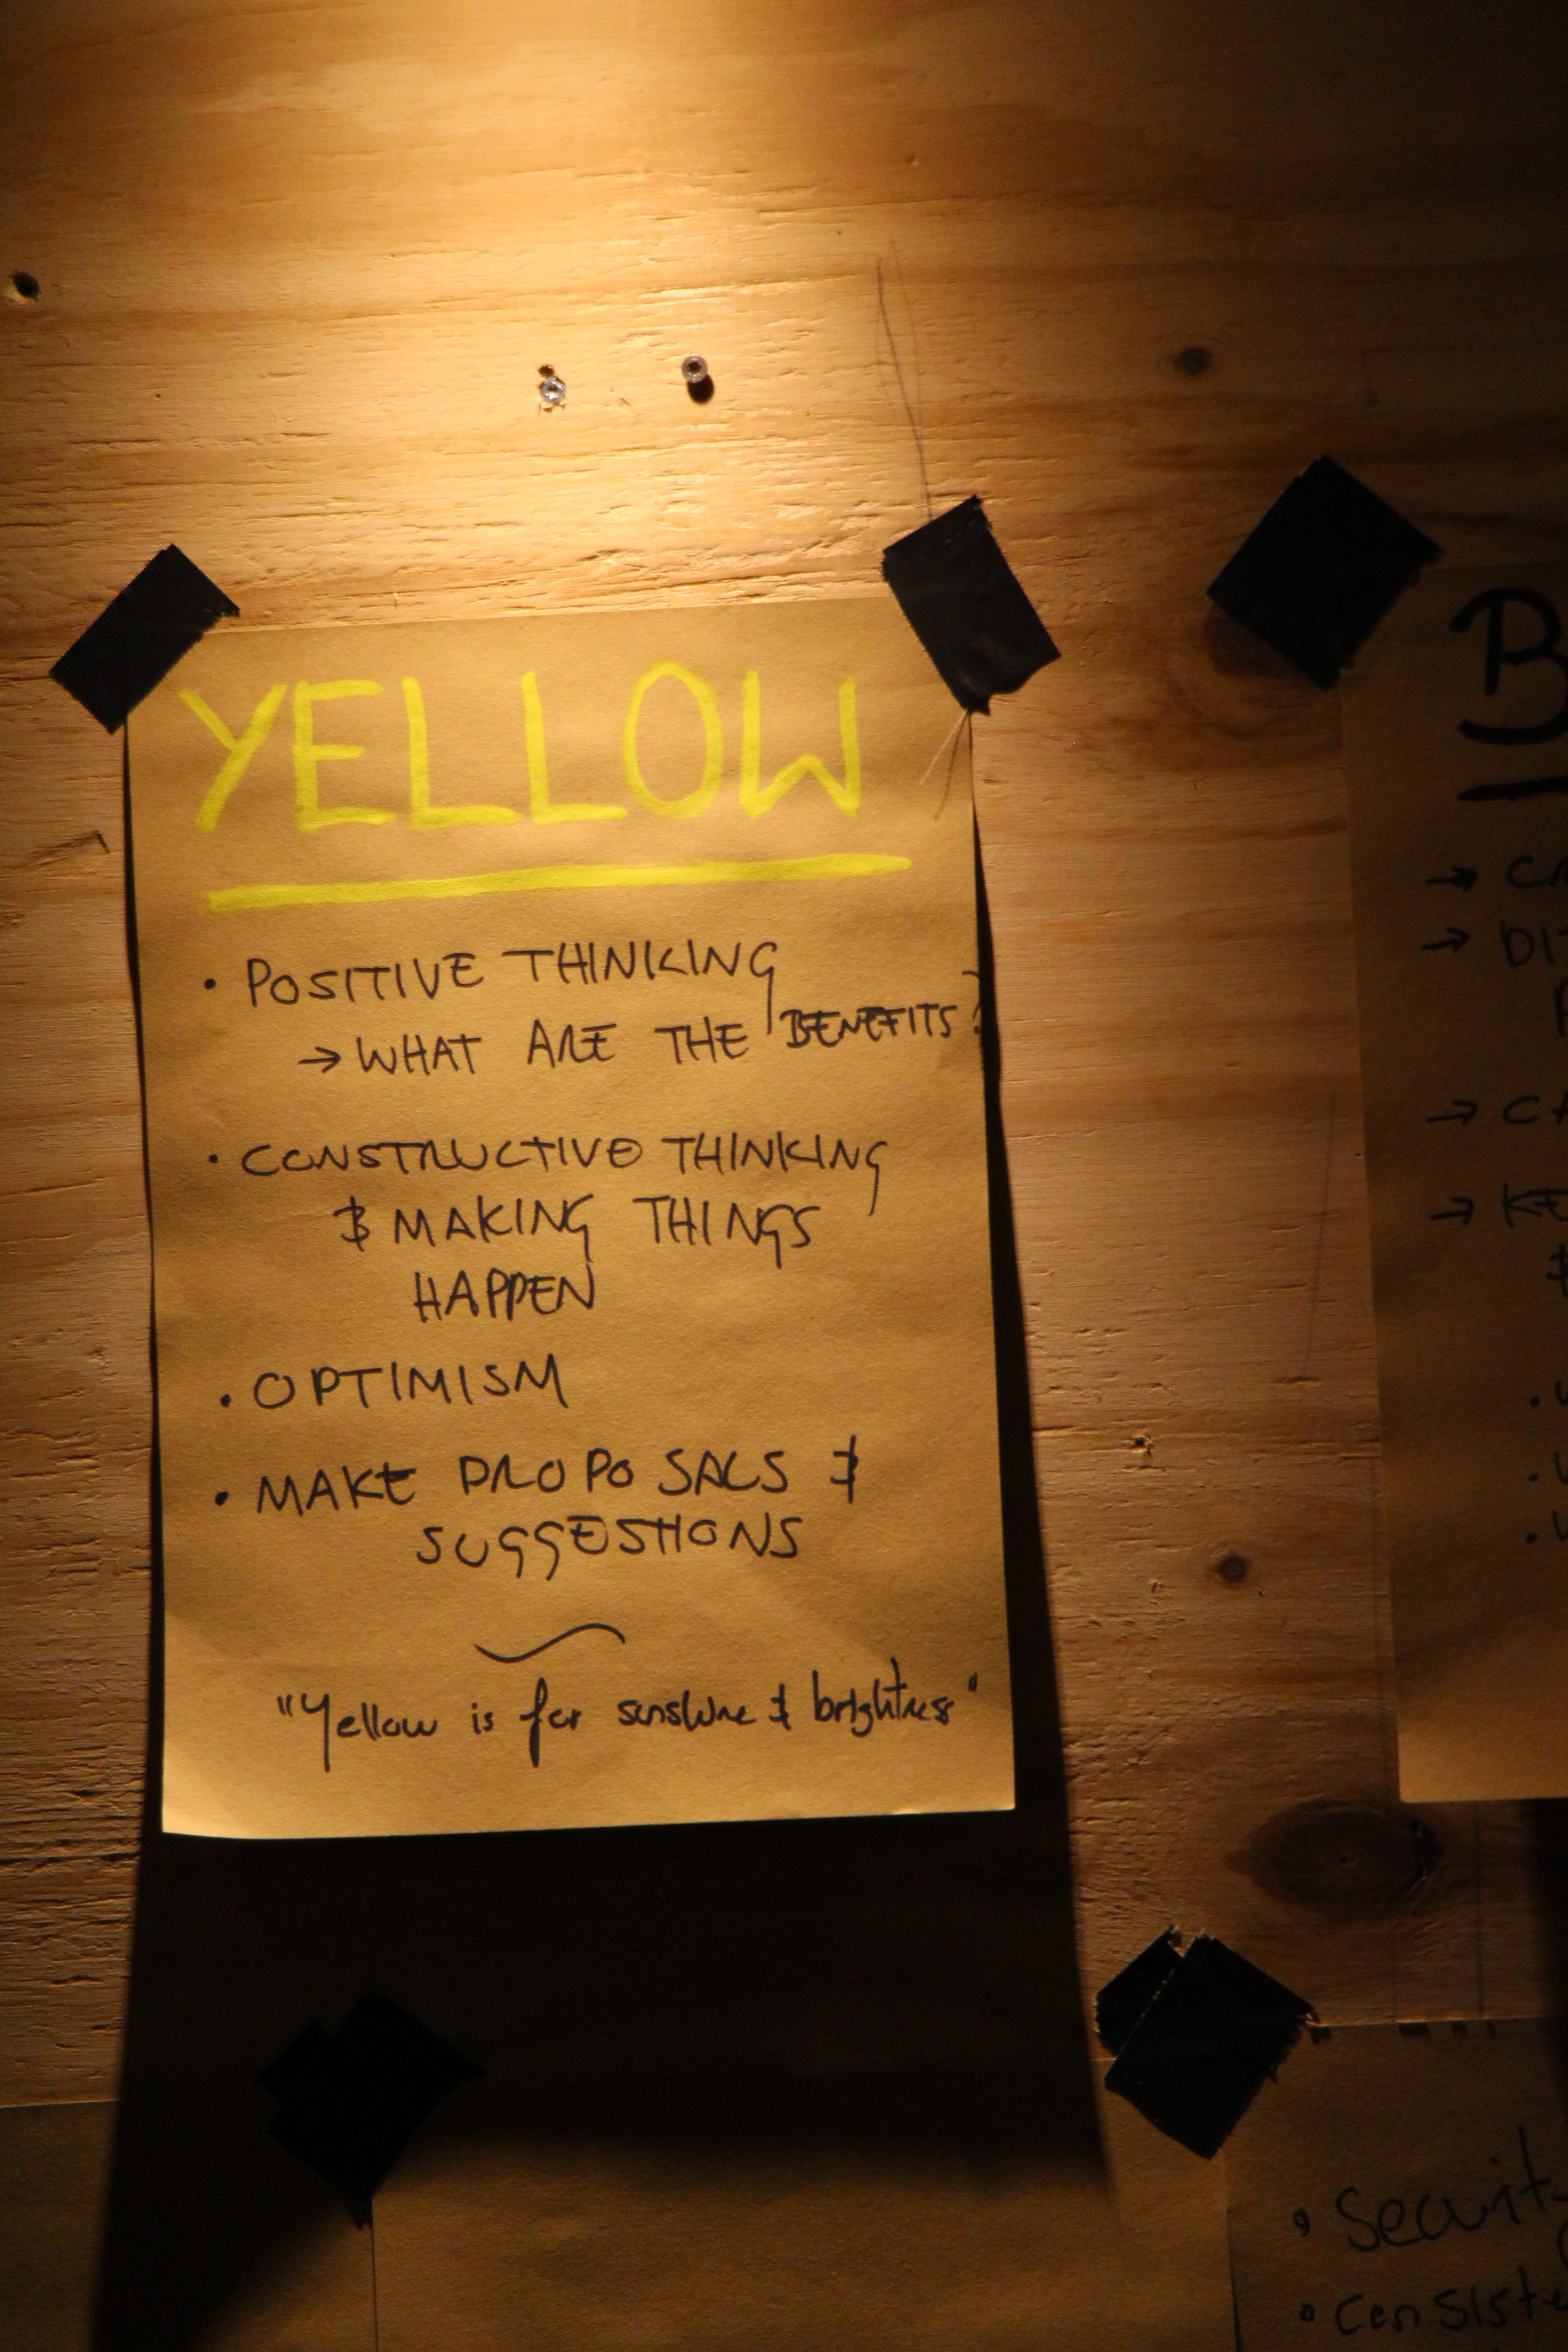 YELLOW
• POSITIVE THINKING
→ WHAT ARE THE BENEFITS?
• CONSTRUCTIVE THINKING
& MAKING THINGS
HAPPEN
• OPTIMISM
• MAKE PROPOSALS &
SUGGESTIONS
"Yellow is for sunshine & brightness"
B
→ CR
→ DI
→ CA
→ KE
&
• Securit
• Consiste